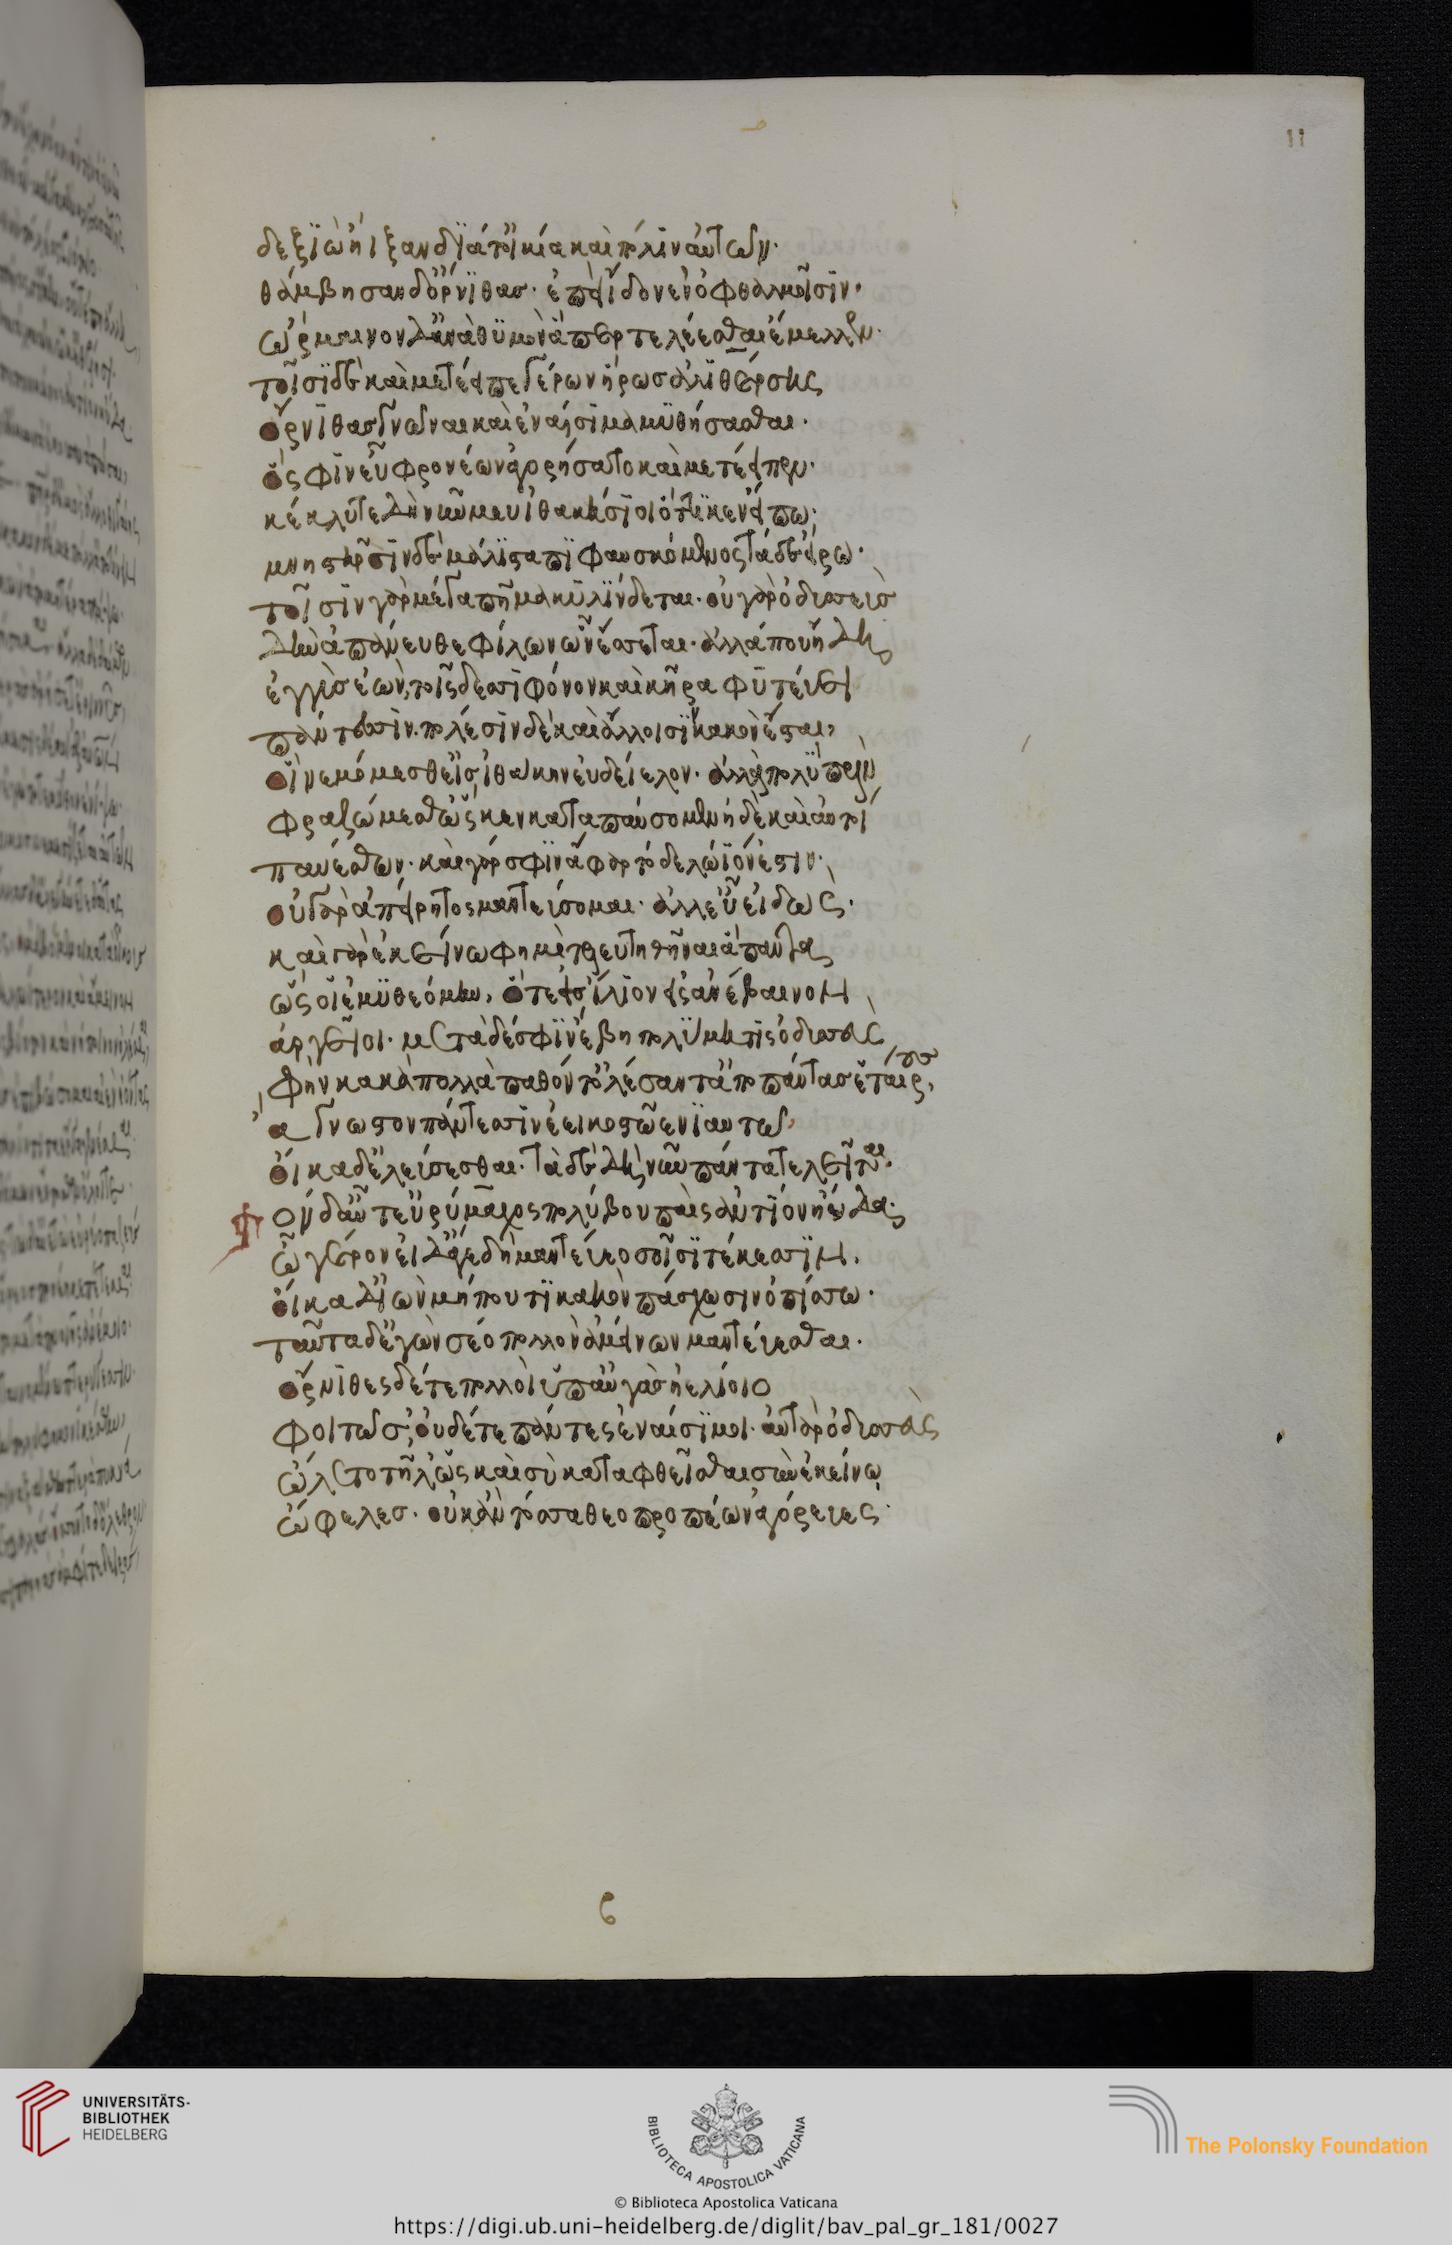 δεξιὼ ἤιξαν διά τ' οἰκία καὶ πόλιν αὐτῶν·
θάμβησαν δ' ὄρνιθας· ἐπεὶ ἴδον ἐν ὀφθαλμοῖσιν·
ὥρμαινον δ' ἀνὰ θυμὸν ἅπερ τελέεσθαι ἔμελλον·
τοῖσι δὲ καὶ μετέειπε γέρων ἥρως ἁλιθέρσης
ὄρνιθας γνῶναι καὶ ἐναίσιμα μυθήσασθαι·
ὅ σφιν ἐυφρονέων ἀγορήσατο καὶ μετέειπεν·
κέκλυτε δὴ νῦν μευ ἰθακήσιοι ὅττι κεν εἴπω·
μνηστῆρσιν δὲ μάλιστα πιφαυσκόμενος τάδε εἴρω·
τοῖσιν γὰρ μέγα πῆμα κυλίνδεται· οὐ γὰρ ὀδυσσεὺς
δὴν ἀπάνευθε φίλων ὧν ἔσσεται· ἀλλά που ἤδη
ἐγγὺς ἐὼν, τοῖσδεσσι φόνον καὶ κῆρα φυτεύει
πάντεσσιν. πολέσιν δὲ καὶ ἄλλοισι κακὸν ἔσται,
οἳ νεμόμεσθ' εἰς ἰθάκην εὐδείελον· ἀλλὰ πολὺ πρὶν
φραζώμεσθ' ὥς κεν καταπαύσομεν ἠδὲ καὶ αὐτοί
παυέσθων· καὶ γάρ σφιν ἄφαρ τόδε λώιόν ἐστιν·
οὐ γὰρ ἀπείρητος μαντεύσομαι· ἀλλ' εὖ εἰδώς·
καὶ γὰρ ἐκείνω φημὶ τελευτηθῆναι ἅπαντα
ὥς οἱ ἐμυθεόμην, ὅτε εἰς ἴλιον εἰσανέβαινον
ἀργεῖοι· μετὰ δέ σφιν ἔβη πολύμητις ὀδυσσεὺς
φῆν κακὰ πολλὰ παθόντ' ὀλέσαντ' ἄπο πάντας ἑταίρους,
ἄγνωστον πάντεσσιν ἐεικοστῶ ἐνιαυτῶ·
οἴκαδ' ἐλεύσεσθαι· τὰ δὲ δὴ νῦν πάντα τελεῖται·
τὸν δ' αὖτ' εὐρύμαχος πολύβου παῖς ἀντίον ηὔδα·
ὦ γέρον εἰ δ' ἄγε δὴ μαντεύεο σοῖσι τέκεσσιν.
οἴκαδ' ἰὼν μή πού τι κακὸν πάσχωσιν ὀπίσσω·
ταῦτα δ' ἐγὼν σέο πολλὸν ἀμείνων μαντεύεσθαι·
ὄρνιθες δέ τε πολλοὶ ὑπ' αὐγὰς ἠελίοιο
φοιτῶσ', οὐδέ τε πάντες ἐναίσιμοι· αὐτὰρ ὀδυσσεὺς
ὤλετο τῆλ' ὡς καὶ σὺ καταφθεῖσθαι σὺν ἐκείνω
ὤφελες· οὐκ ἂν τόσσα θεοπροπέων ἀγόρευες·
11
UNIVERSITÄTS-
BIBLIOTHEK
HEIDELBERG
BIBLIOTECA APOSTOLICA VATICANA
The Polonsky Foundation
© Biblioteca Apostolica Vaticana
https://digi.ub.uni-heidelberg.de/diglit/bav_pal_gr_181/0027